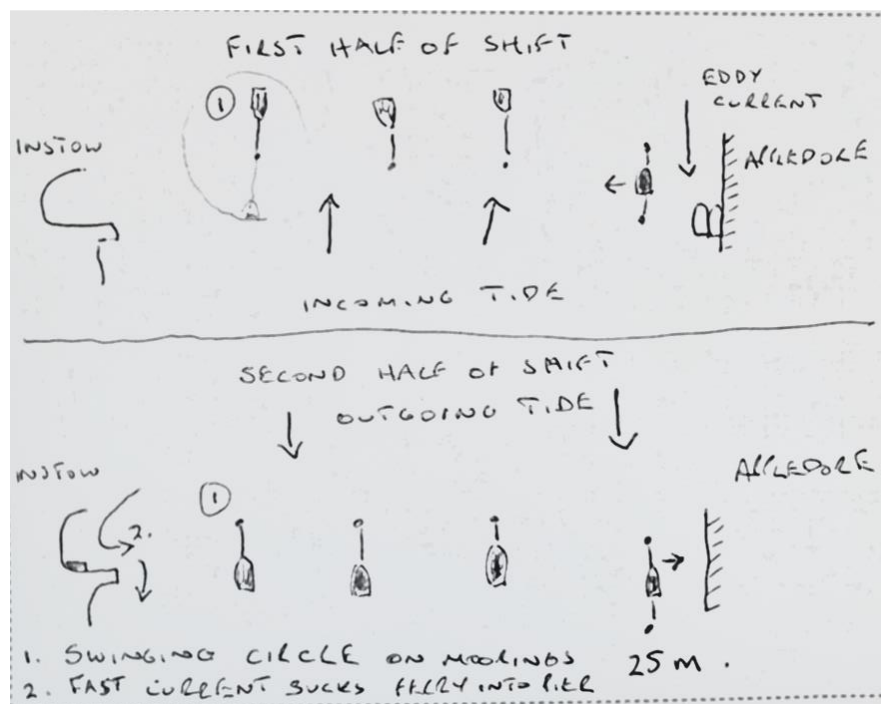 FIRST HALF OF SHIFT
EDDY
CURRENT
1
INSTOW
APPLEDORE
INCOMING TIDE
SECOND HALF OF SHIFT
OUTGOING TIDE
INSTOW
APPLEDORE
1
2.
1. SWINGING CIRCLE ON MOORINGS
25 M.
2. FAST CURRENT SUCKS FERRY INTO PIER